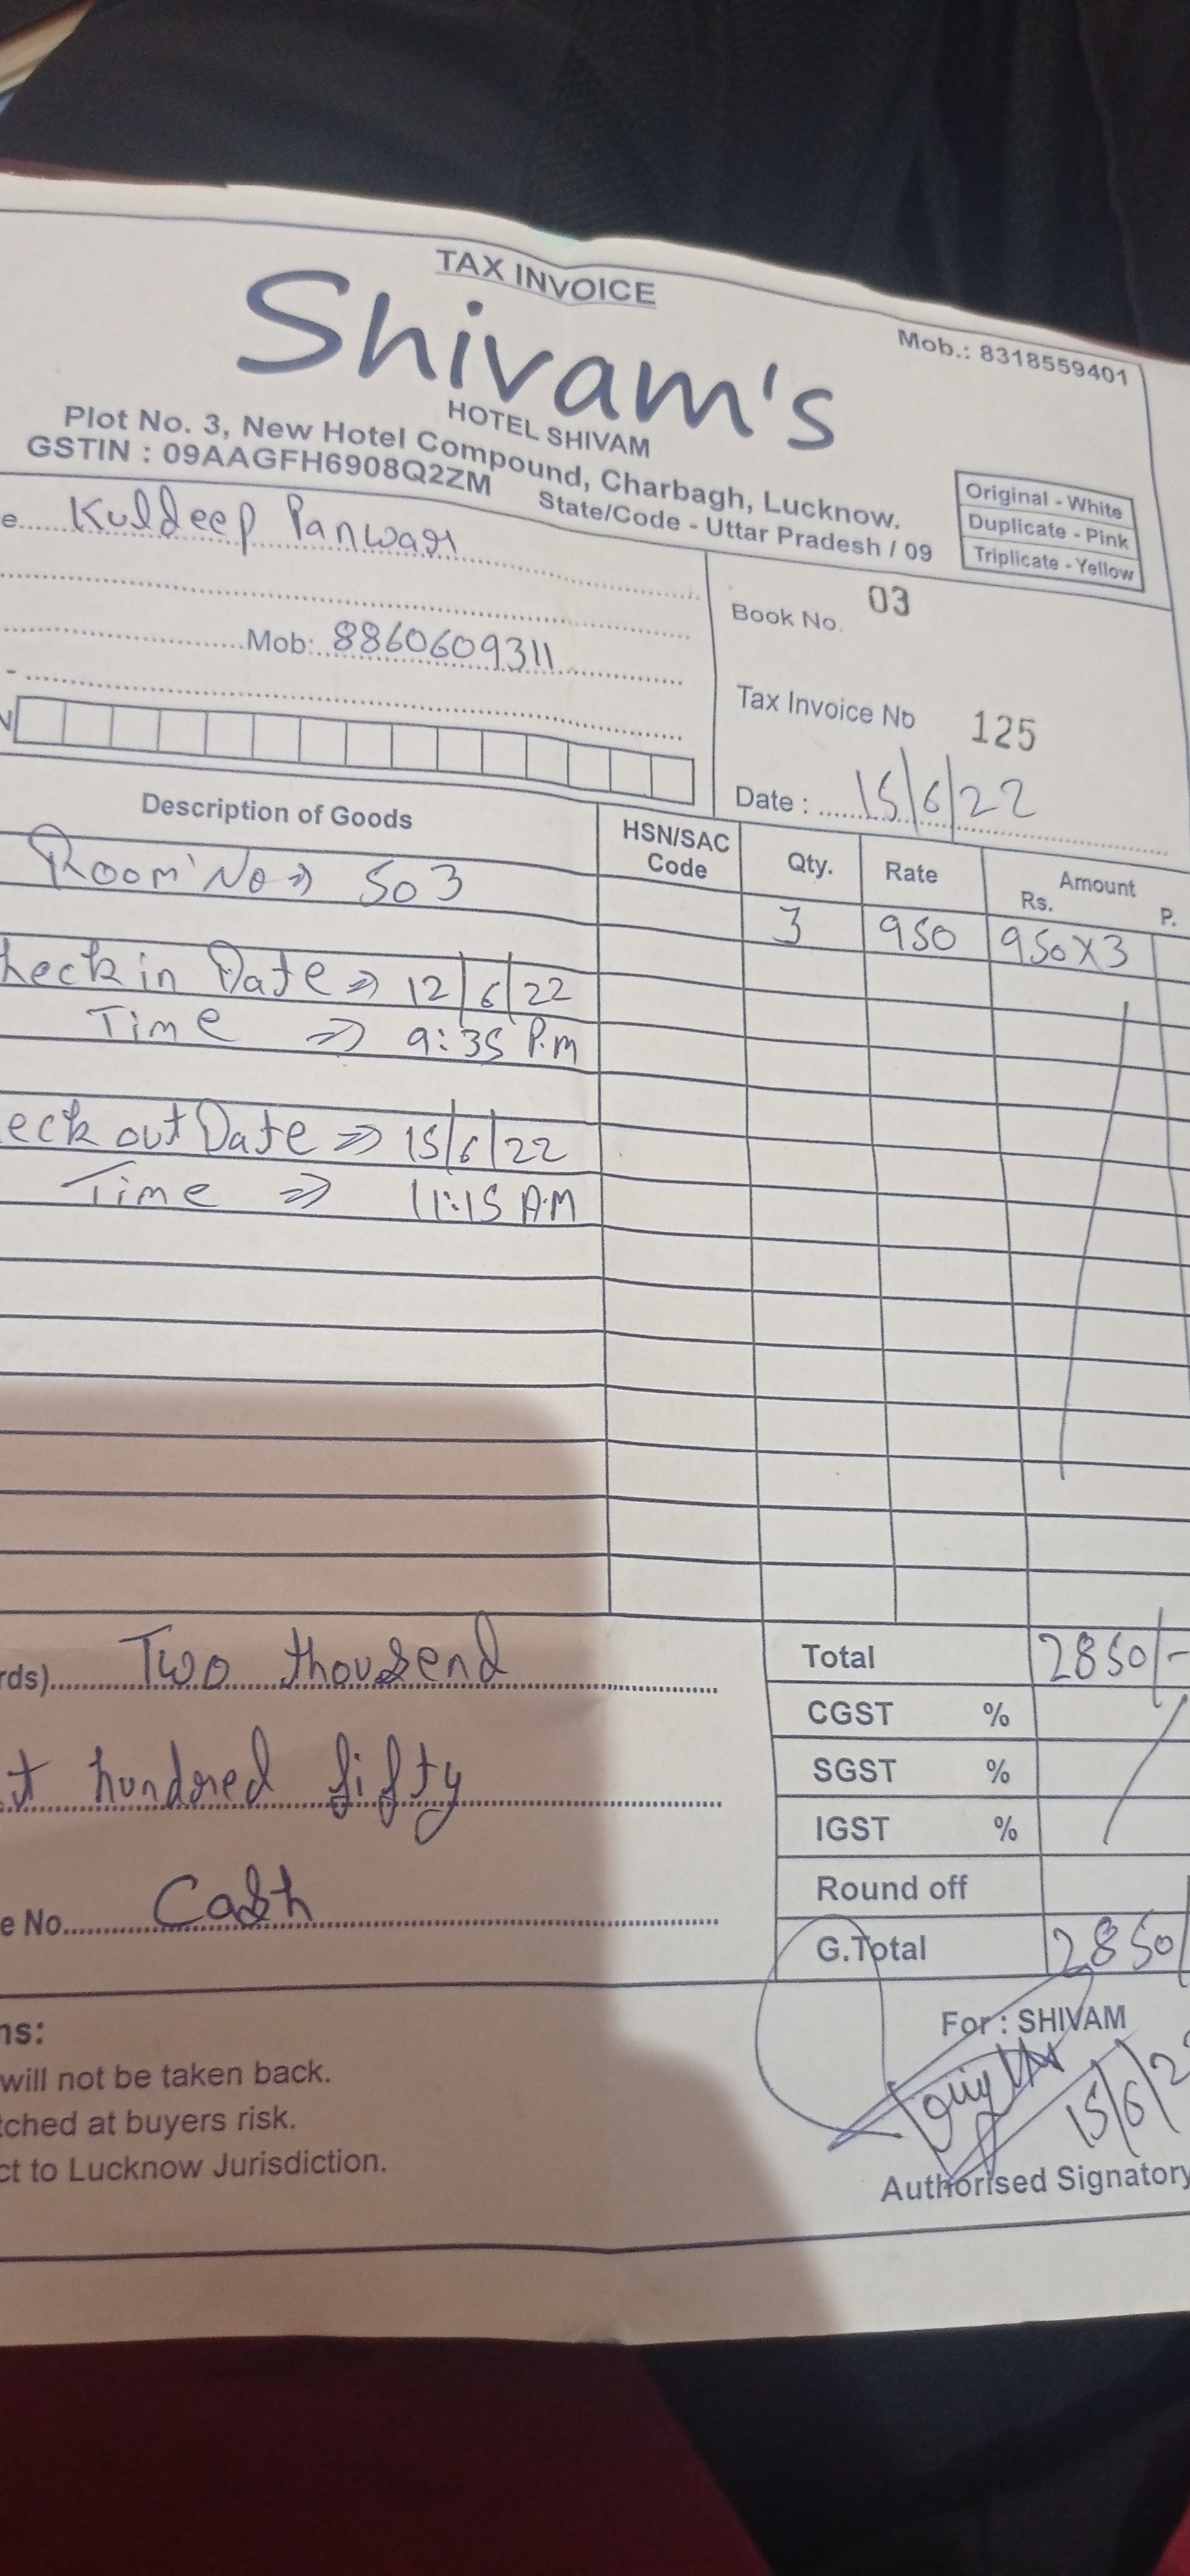 TAX INVOICE
Mob.: 8318559401
Shivam's
HOTEL SHIVAM
Plot No. 3, New Hotel Compound, Charbagh, Lucknow.
GSTIN : 09AAGFH6908Q2ZM State/Code - Uttar Pradesh / 09
Original - White
Duplicate - Pink
Triplicate - Yellow
e Kuldeep Panwar
Mob: 8860609311
Book No. 03
Tax Invoice No 125
Date : 15/6/22
Description of Goods HSN/SAC Code Qty. Rate Amount Rs. P.
Room No ⇒ 503 3 950 950X3
heck in Date ⇒ 12/6/22
Time ⇒ 9:35 P.m
eck out Date ⇒ 15/6/22
Time ⇒ 11:15 A.M
rds) Two thousend
t hundred fifty
e No. Cash
Total 2850/-
CGST %
SGST %
IGST %
Round off
G.Total 2850/
ns:
will not be taken back.
tched at buyers risk.
ct to Lucknow Jurisdiction.
For : SHIVAM
15/6/2
Authorised Signatory